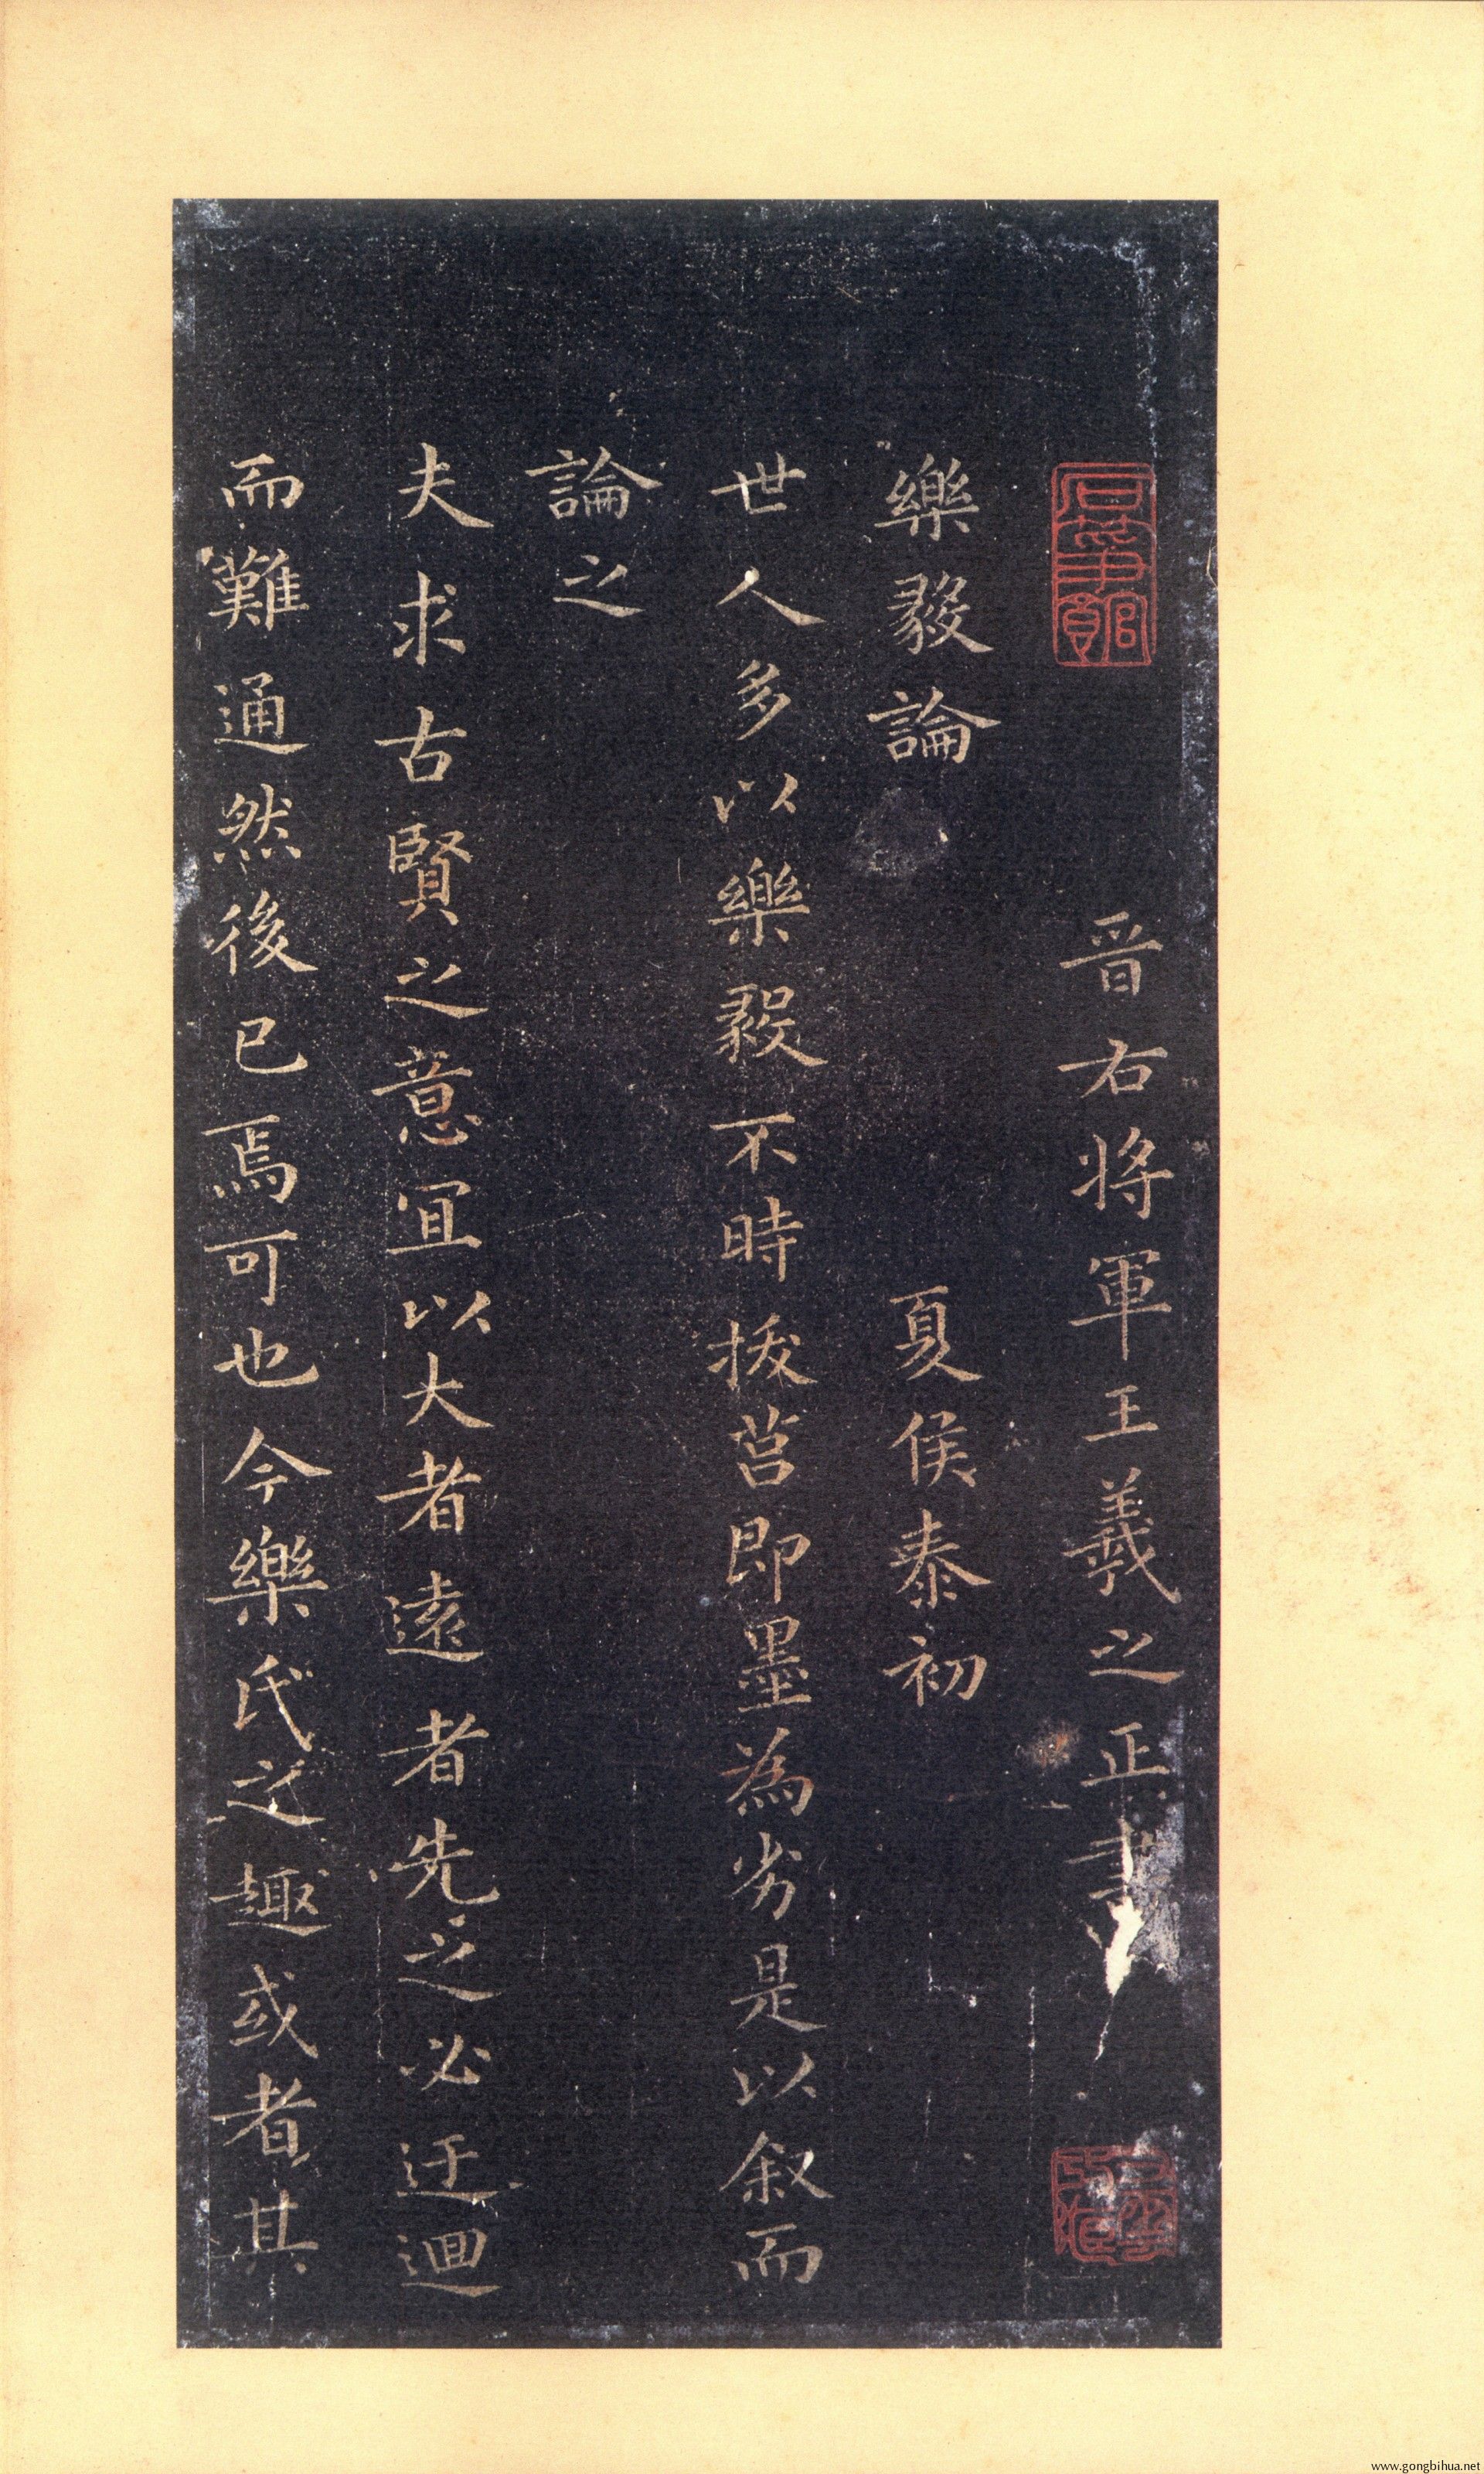 晉右將軍王羲之正書
樂毅論 夏侯泰初
世人多以樂毅不時拔莒即墨為劣是以叙而
論之
夫求古賢之意宜以大者遠者先之必迂迴
而難通然後已焉可也今樂氏之趣或者其
www.gongbihua.net